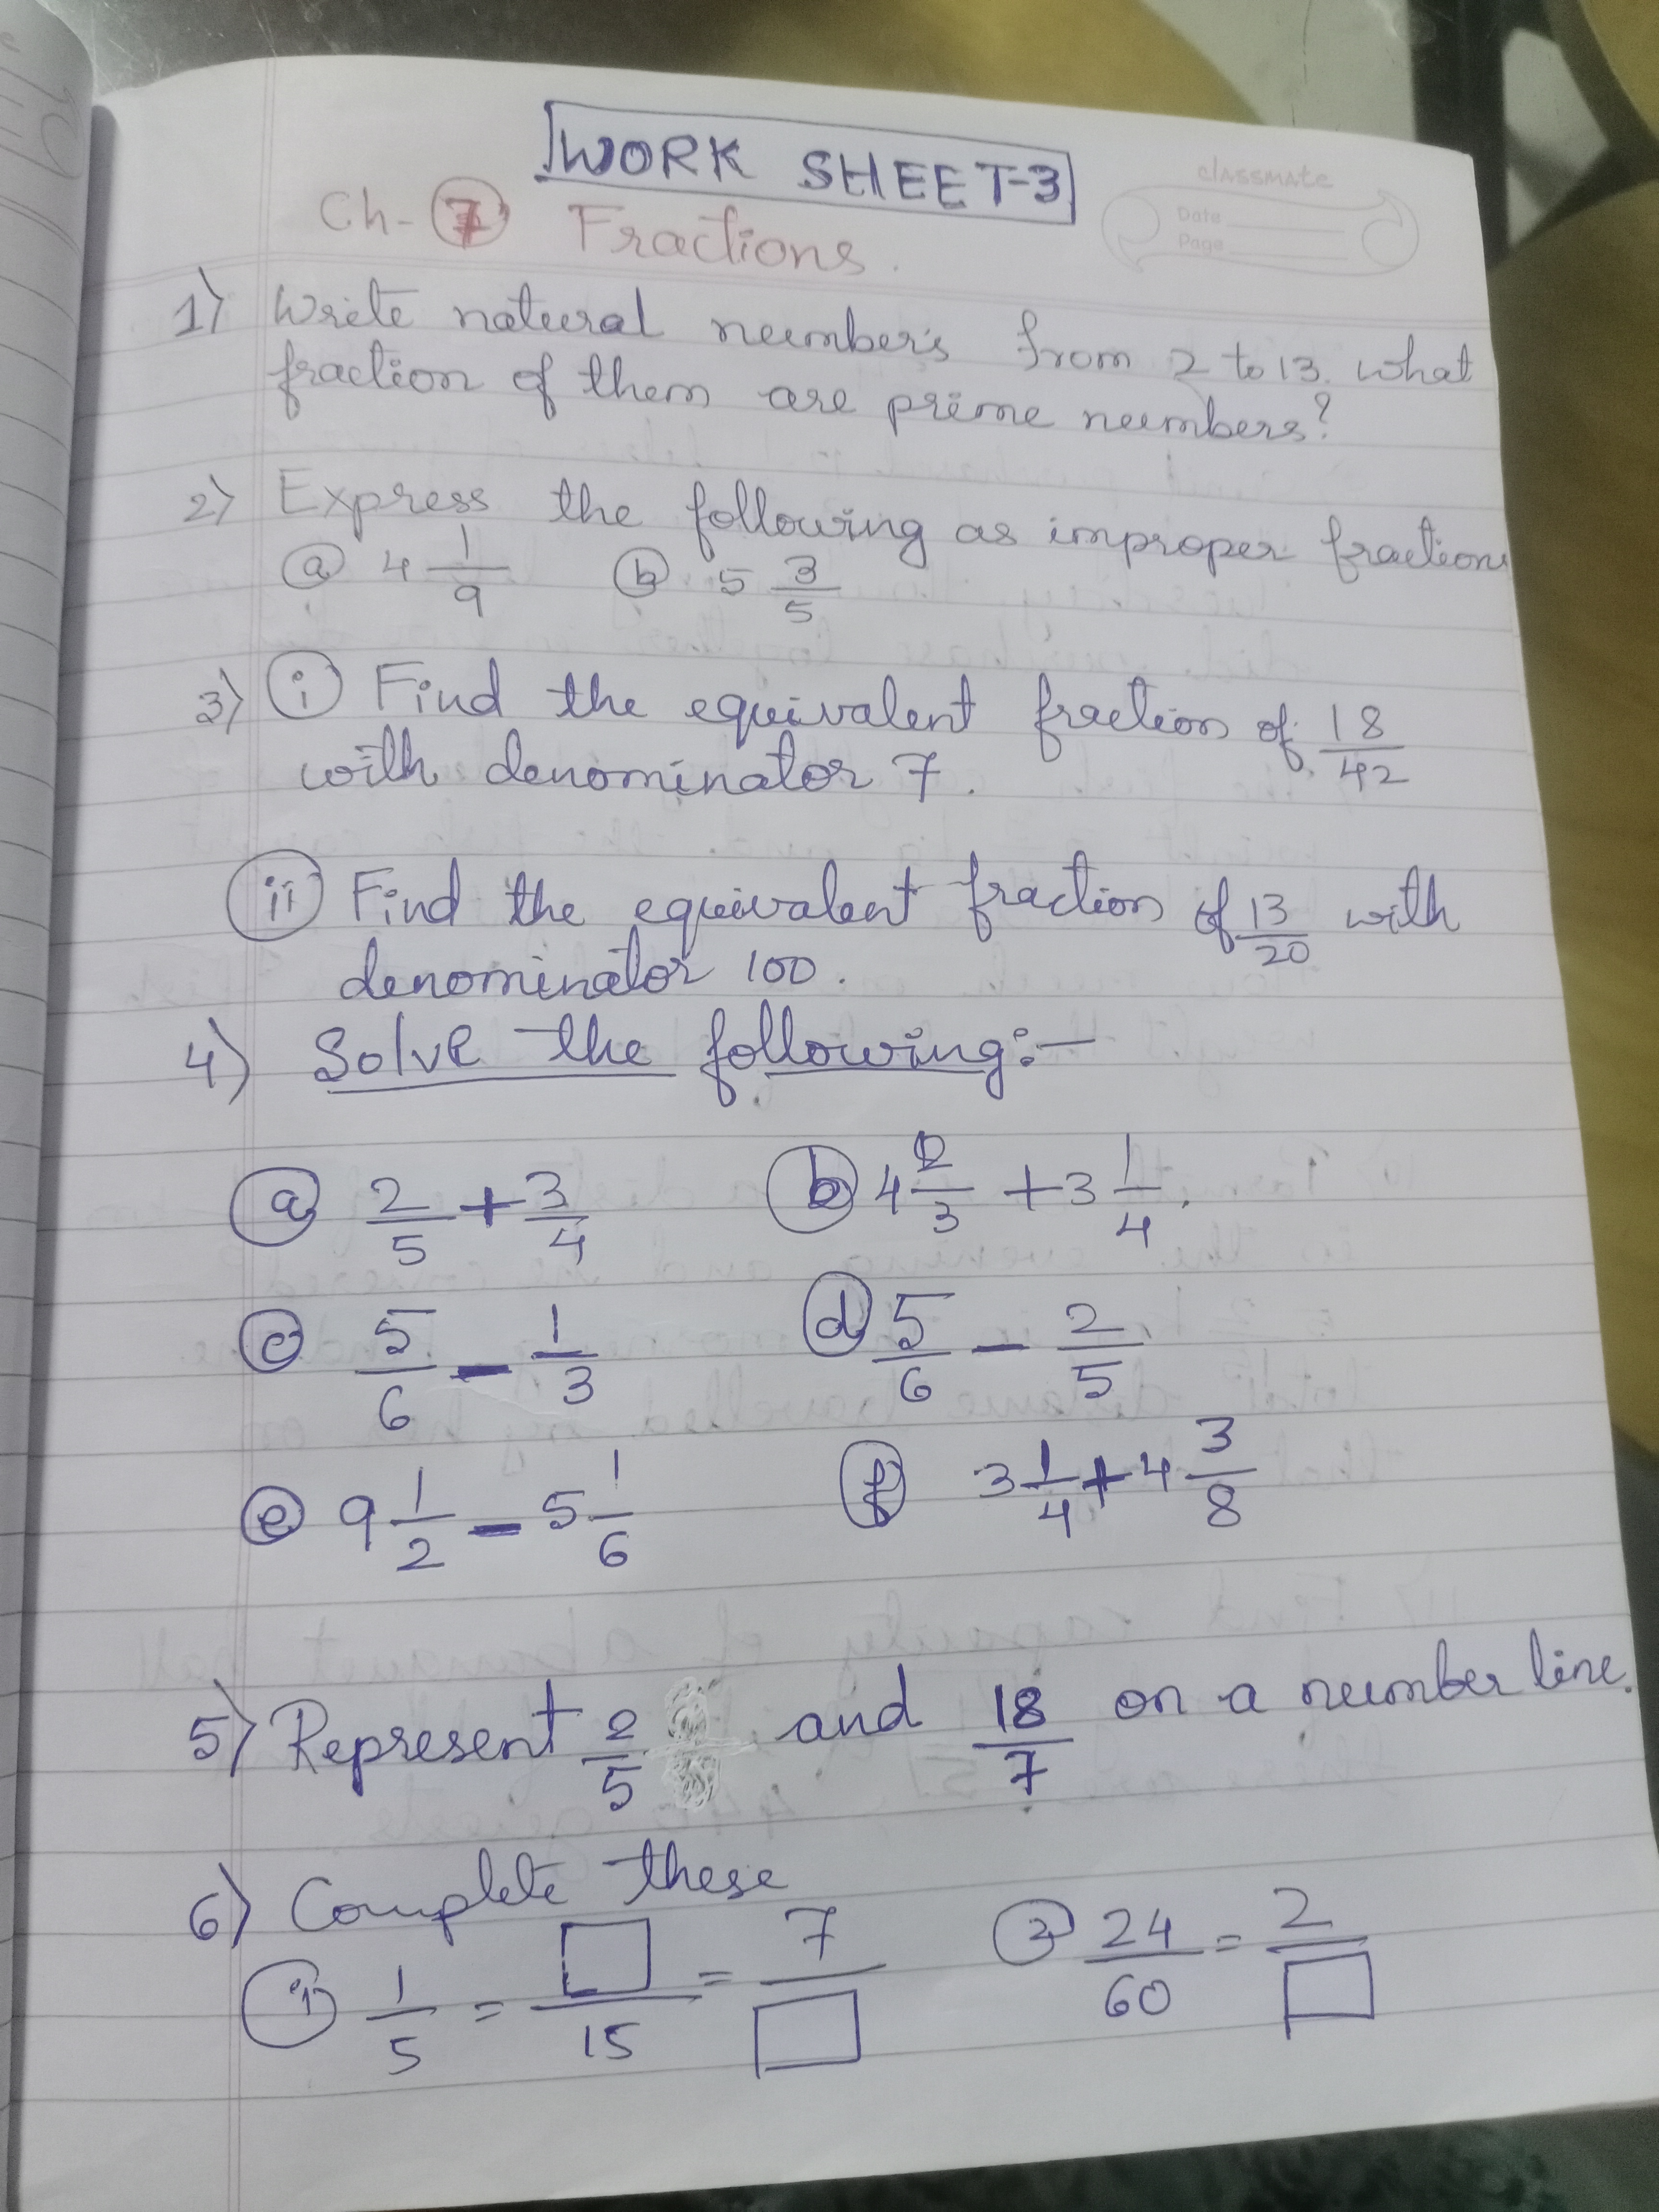 WORK SHEET-3
classmate
Date
Page
Ch- 7 Fractions.
1) Write natural number's from 2 to 13. what
fraction of them are prime numbers?
2) Express the following as improper fractions
(a) 4 1/9 (b) 5 3/5
3) (i) Find the equivalent fraction of 18/42
with denominator 7.
(ii) Find the equivalent fraction of 13/20 with
denominator 100.
4) Solve the following:-
(a) 2/5 + 3/4 (b) 4 2/3 + 3 1/4.
(c) 5/6 - 1/3 (d) 5/6 - 2/5
(e) 9 1/2 - 5 1/6 (f) 3 1/4 + 4 3/8
5) Represent 2/5 and 18/7 on a number line.
6) Complete these
(1) 1/5 = □/15 = 7/□ (2) 24/60 = 2/□